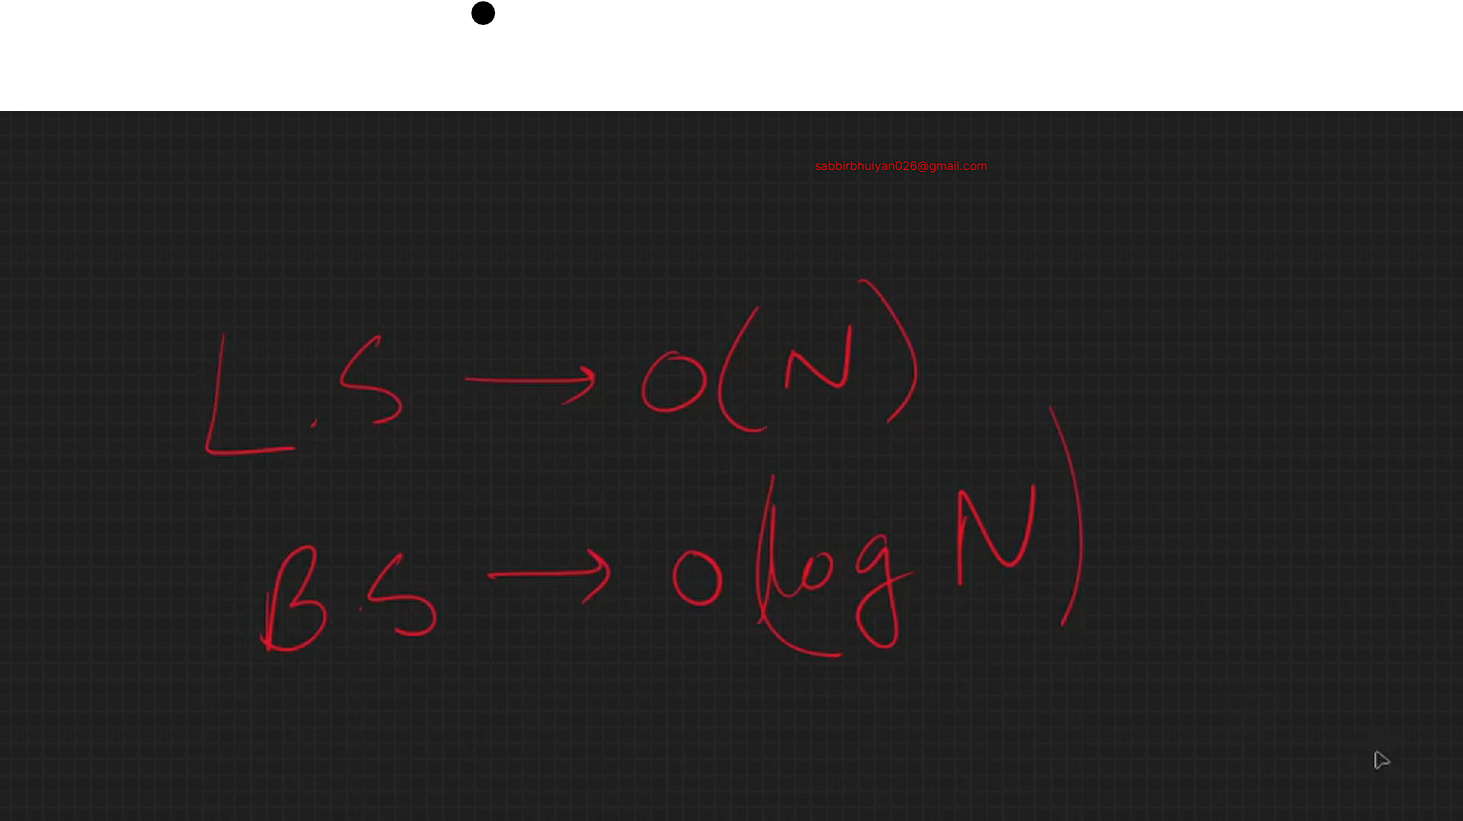 sabbirbhuiyan026@gmail.com
L.S → O(N)
B.S → O(log N)